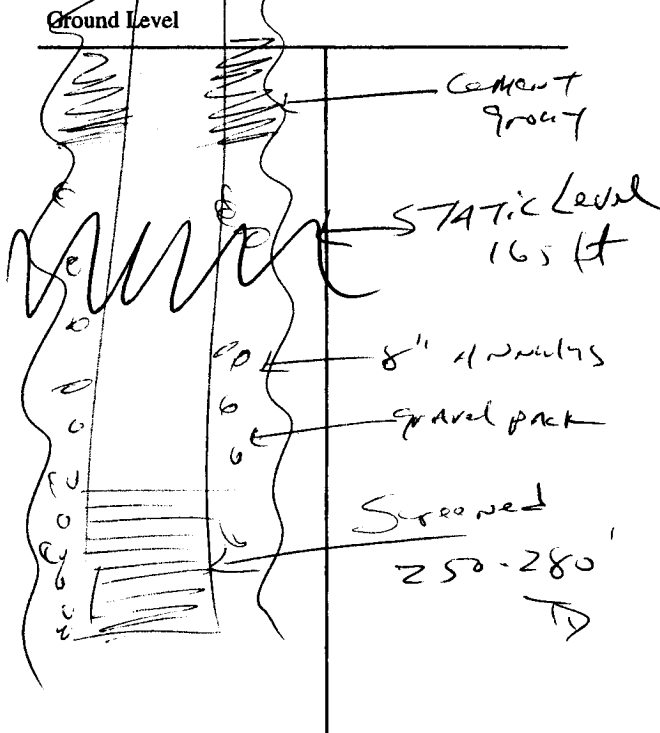 Ground Level
Cement
grout
STATIC Level
165 ft
8" Annulus
gravel pack
Screened
250-280'
TD